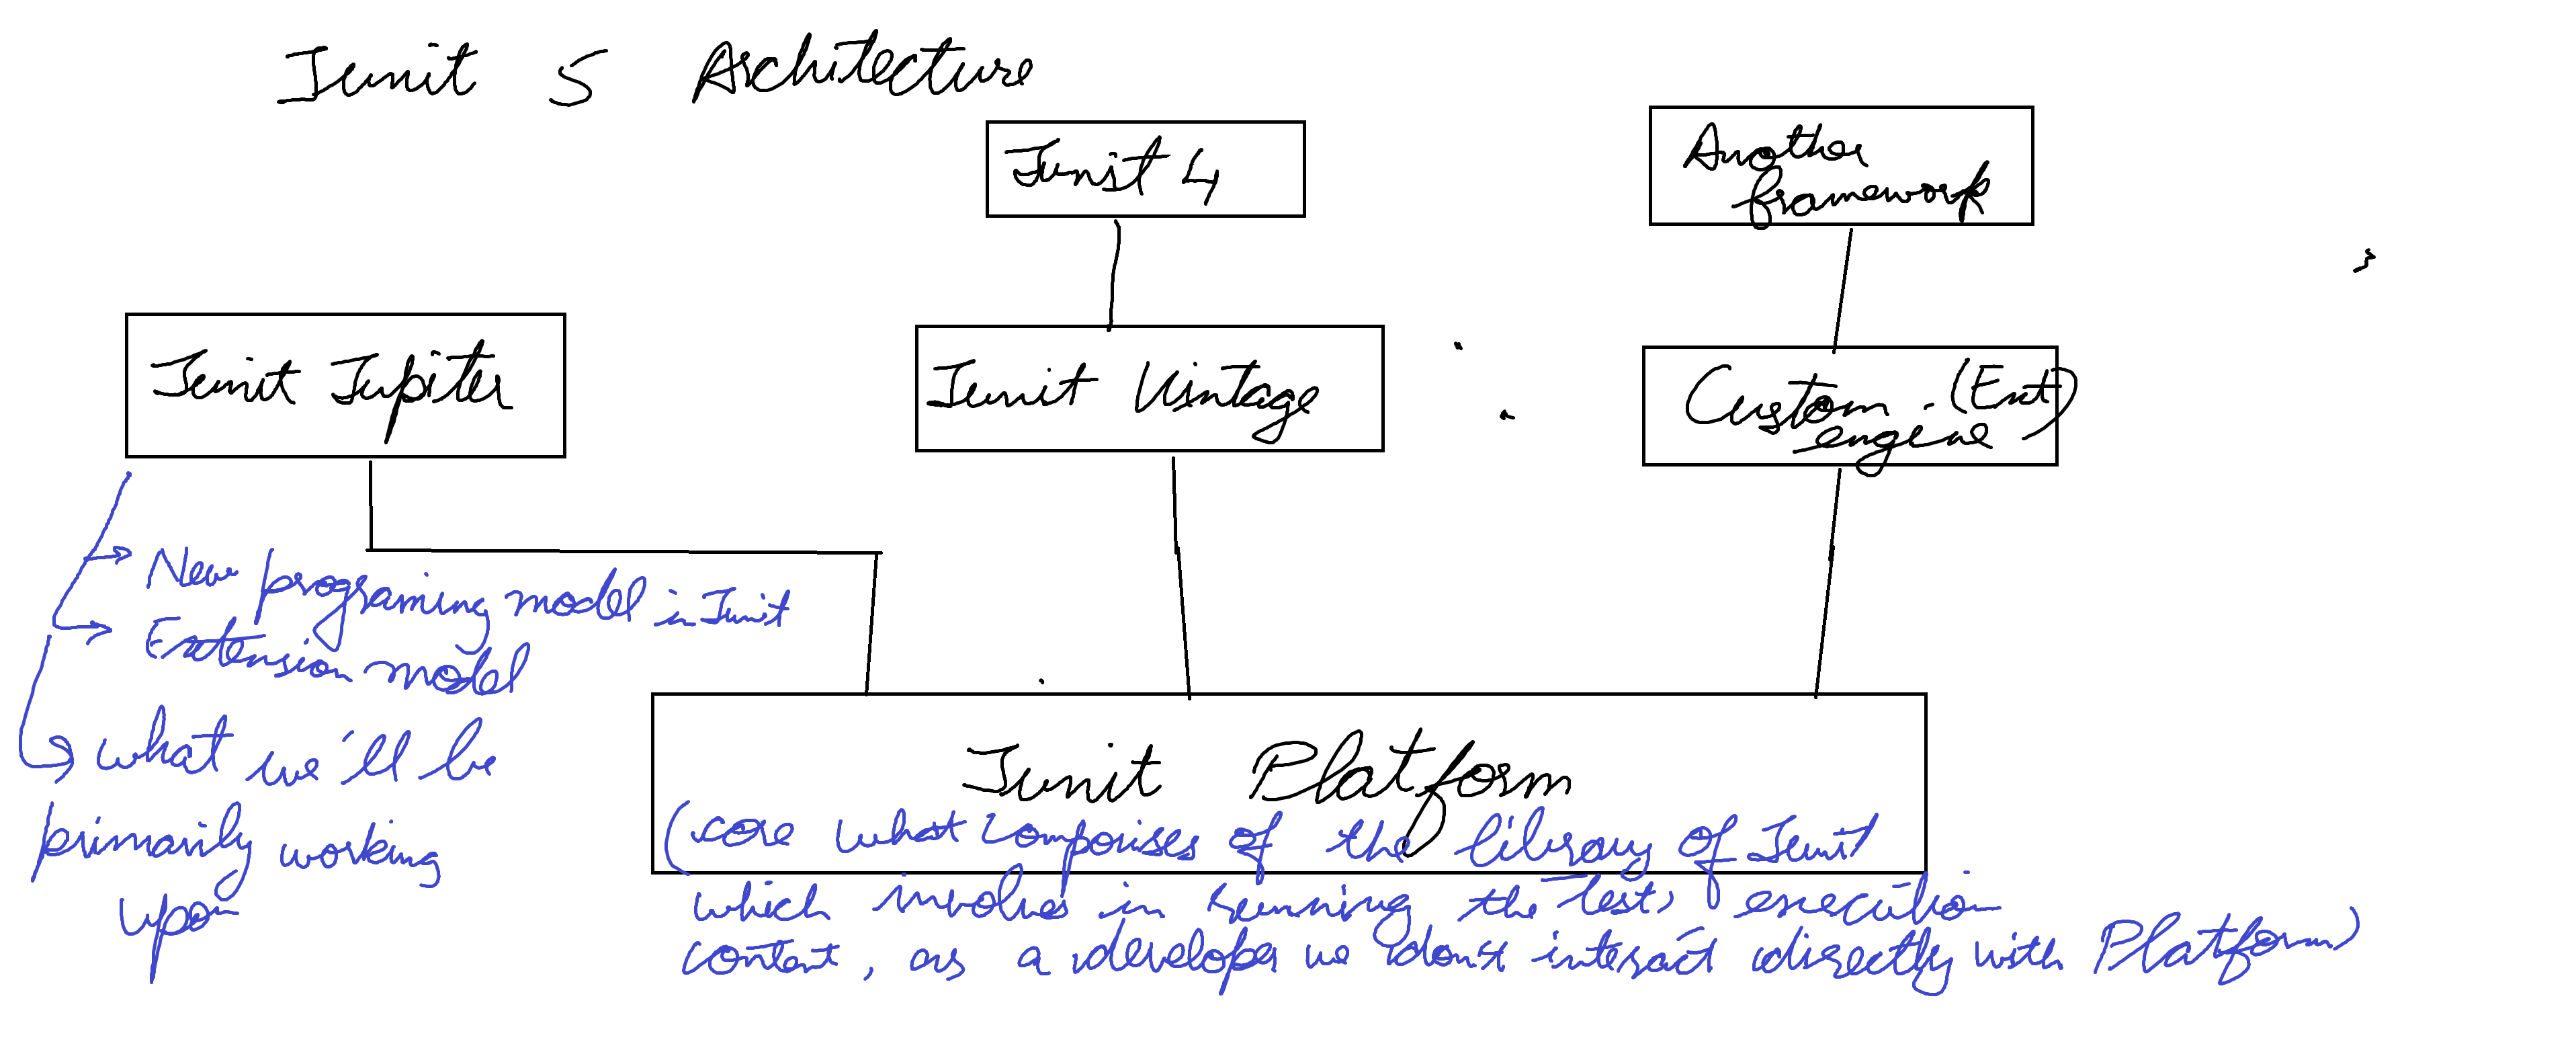 Junit 5 Architecture
Junit 4
Another
framework
Junit Jupiter
Junit Vintage
Custom (Ext)
engine
New programing model in Junit
Extension model
what we'll be
primarily working
upon
Junit Platform
(core what comprises of the library of Junit
which involves in running the tests, execution
context, as a developer we don't interact directly with Platform)